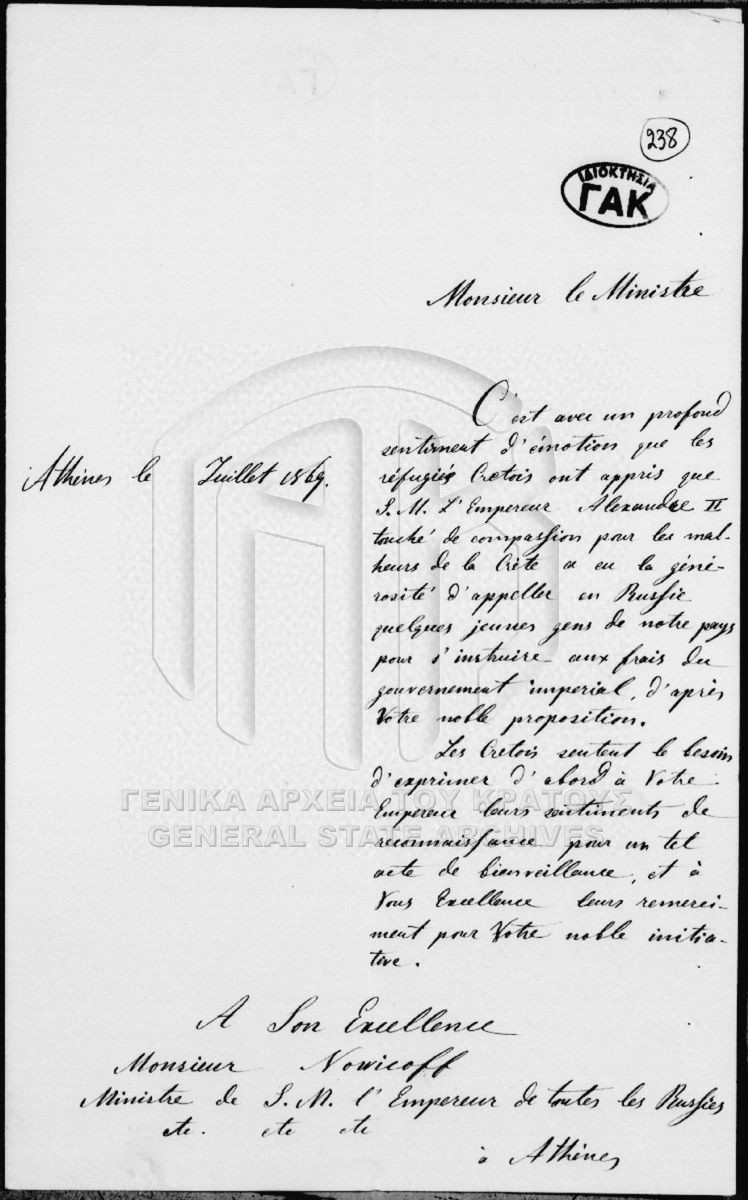 238
ΙΔΙΟΚΤΗΣΙΑ
ΓΑΚ
Monsieur le Ministre
Athènes le Juillet 1869.
C'est avec un profond
sentiment d'émotion que les
réfugiés Cretois ont appris que
S. M. L'Empereur Alexandre II
touché de compassion pour les mal-
heurs de la Crète a eu la géné-
rosité d'appeller en Russie
quelques jeunes gens de notre pays
pour s'instruire aux frais du
gouvernement imperial, d'après
Votre noble proposition.
Les Cretois sentent le besoin
d'exprimer d'abord à Votre
Empereur leurs sentiments de
reconnaissance pour un tel
acte de bienveillance, et à
Vous Excellence leurs remerci-
ment pour Votre noble initia-
tive.
ΓΕΝΙΚΑ ΑΡΧΕΙΑ ΤΟΥ ΚΡΑΤΟΥΣ
GENERAL STATE ARCHIVES
A Son Excellence
Monsieur Nowicoff
Ministre de S. M. l'Empereur de toutes les Russies
etc. etc etc
à Athènes